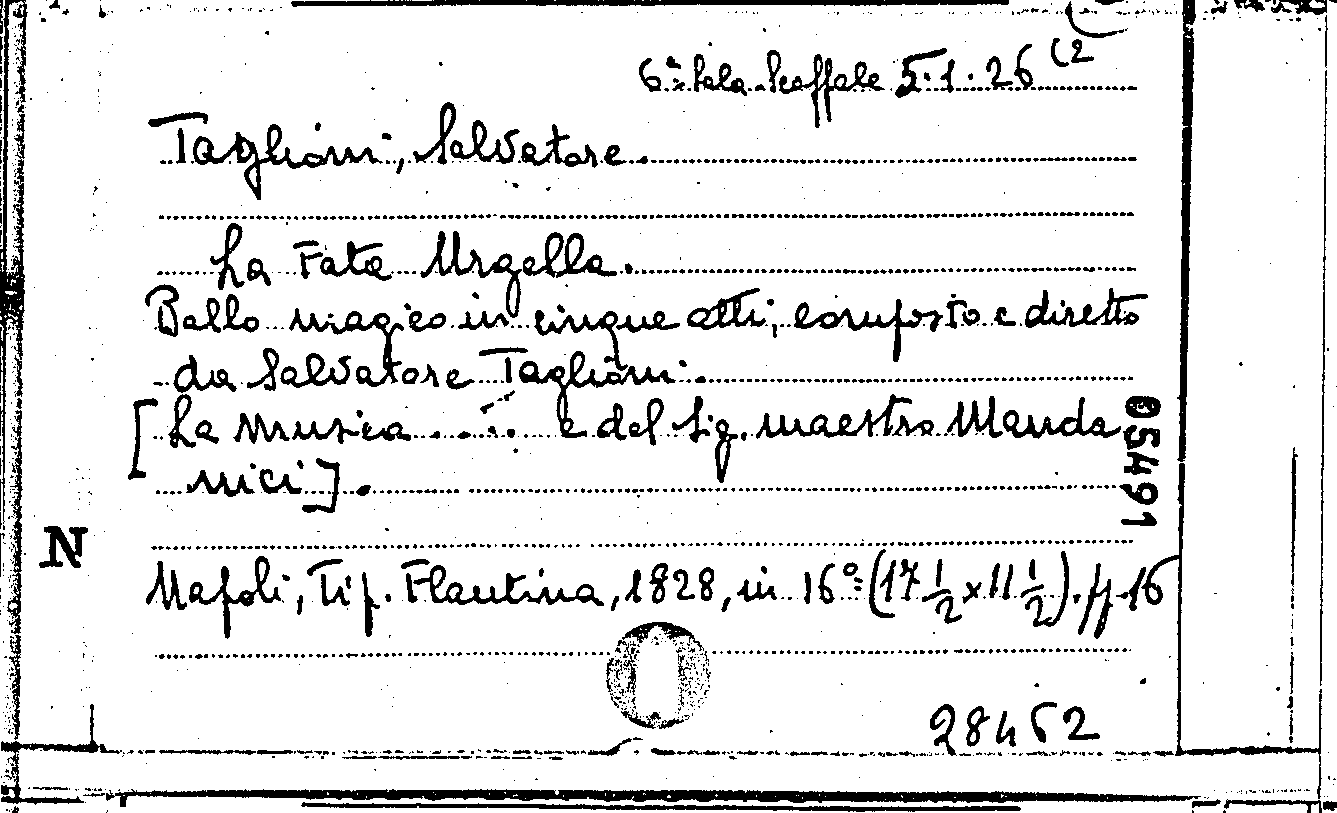 6ª Sala. Scaffale 5.1.26 (2
Taglioni, Salvatore.
La Fata Urgella.
Ballo magico in cinque atti, composto e diretto
da Salvatore Taglioni.
[La musica ..... è del sig. maestro Manda
nici].
055491
N
Napoli, Tip. Flautina, 1828, in 16º (17 1/2 x 11 1/2). pp. 16
28462